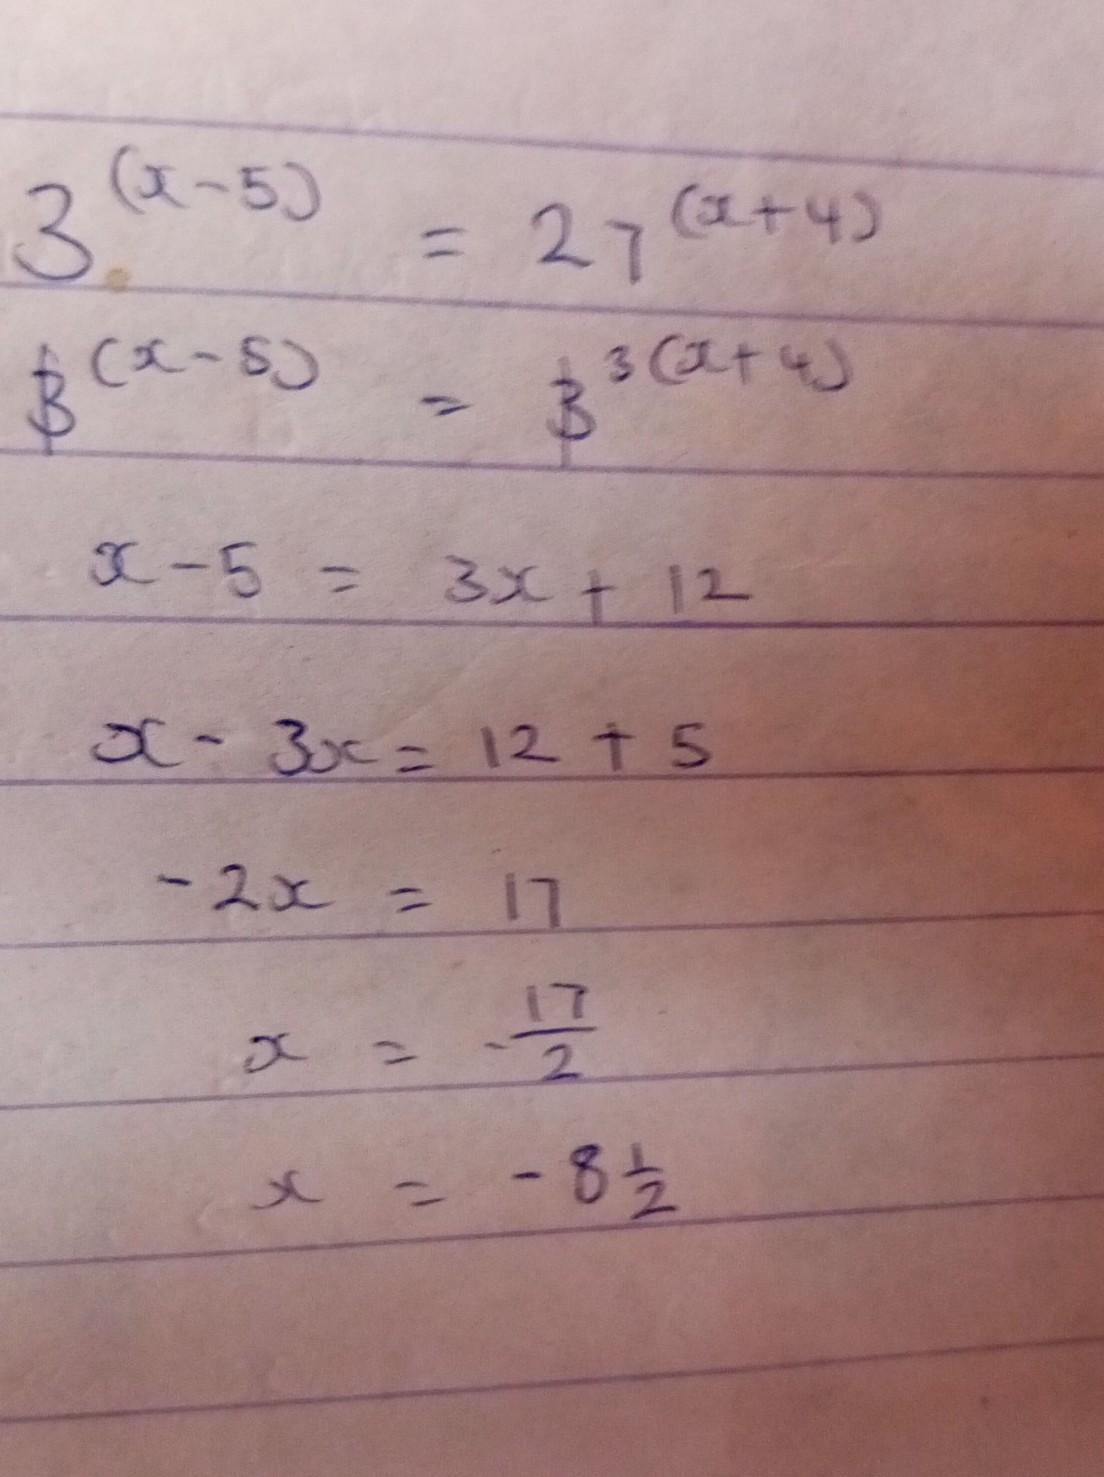 3^(x-5) = 27^(x+4)
3^(x-5) = 3^3(x+4)
x - 5 = 3x + 12
x - 3x = 12 + 5
-2x = 17
x = -17/2
x = -8 1/2